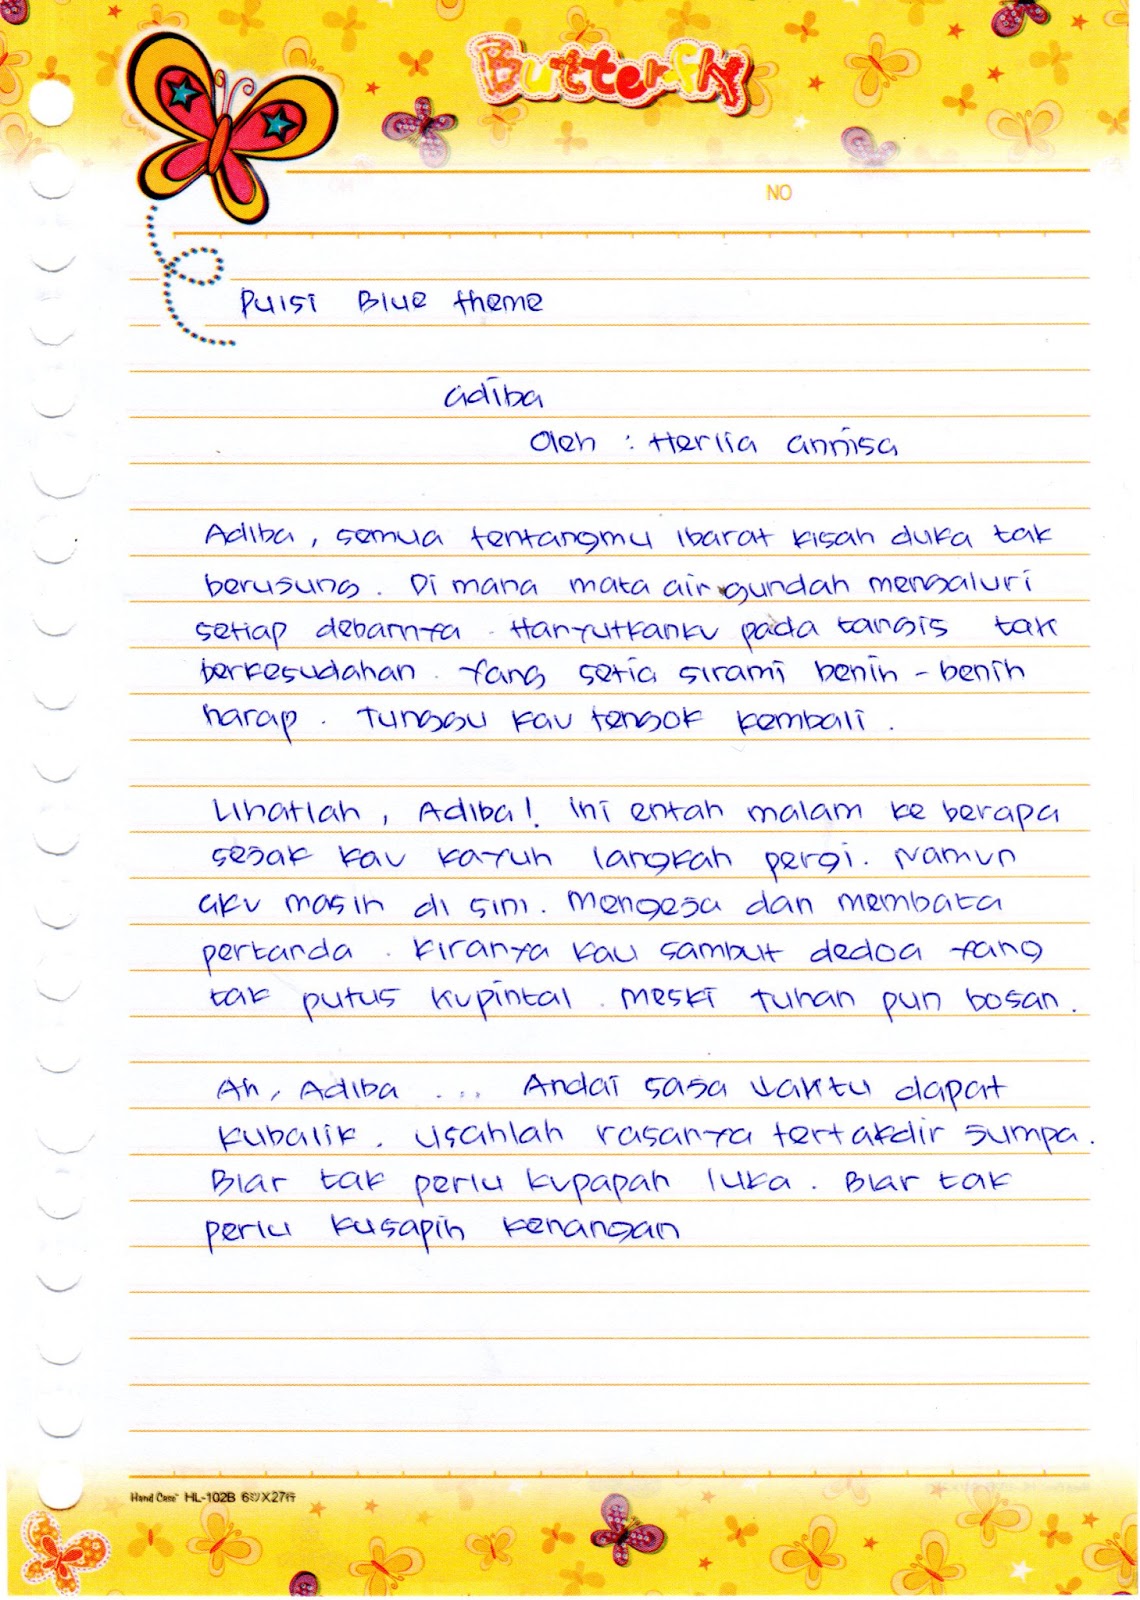 Butterfly
NO
Puisi Blue theme
Adiba
Oleh : Herlia annisa
Adiba, semua tentangmu ibarat kisah duka tak
berusung. Di mana mata air gundah mengaluri
setiap debarnya. Hanyutkanku pada tangis tak
berkesudahan. Yang setia sirami benih-benih
harap. Tunggu kau tengok kembali.
Lihatlah, Adiba! ini entah malam ke berapa
sejak kau kayuh langkah pergi. Namun
aku masih di sini. Mengeja dan membata
pertanda. Kiranya kau sambut dedoa yang
tak putus kupintal. Meski Tuhan pun bosan.
Ah, Adiba ... Andai saja waktu dapat
kubalik. Usahlah rasanya tertakdir jumpa.
Biar tak perlu kupapah luka. Biar tak
perlu kusapih kenangan
Hand Case™ HL-102B 6㌢X27行